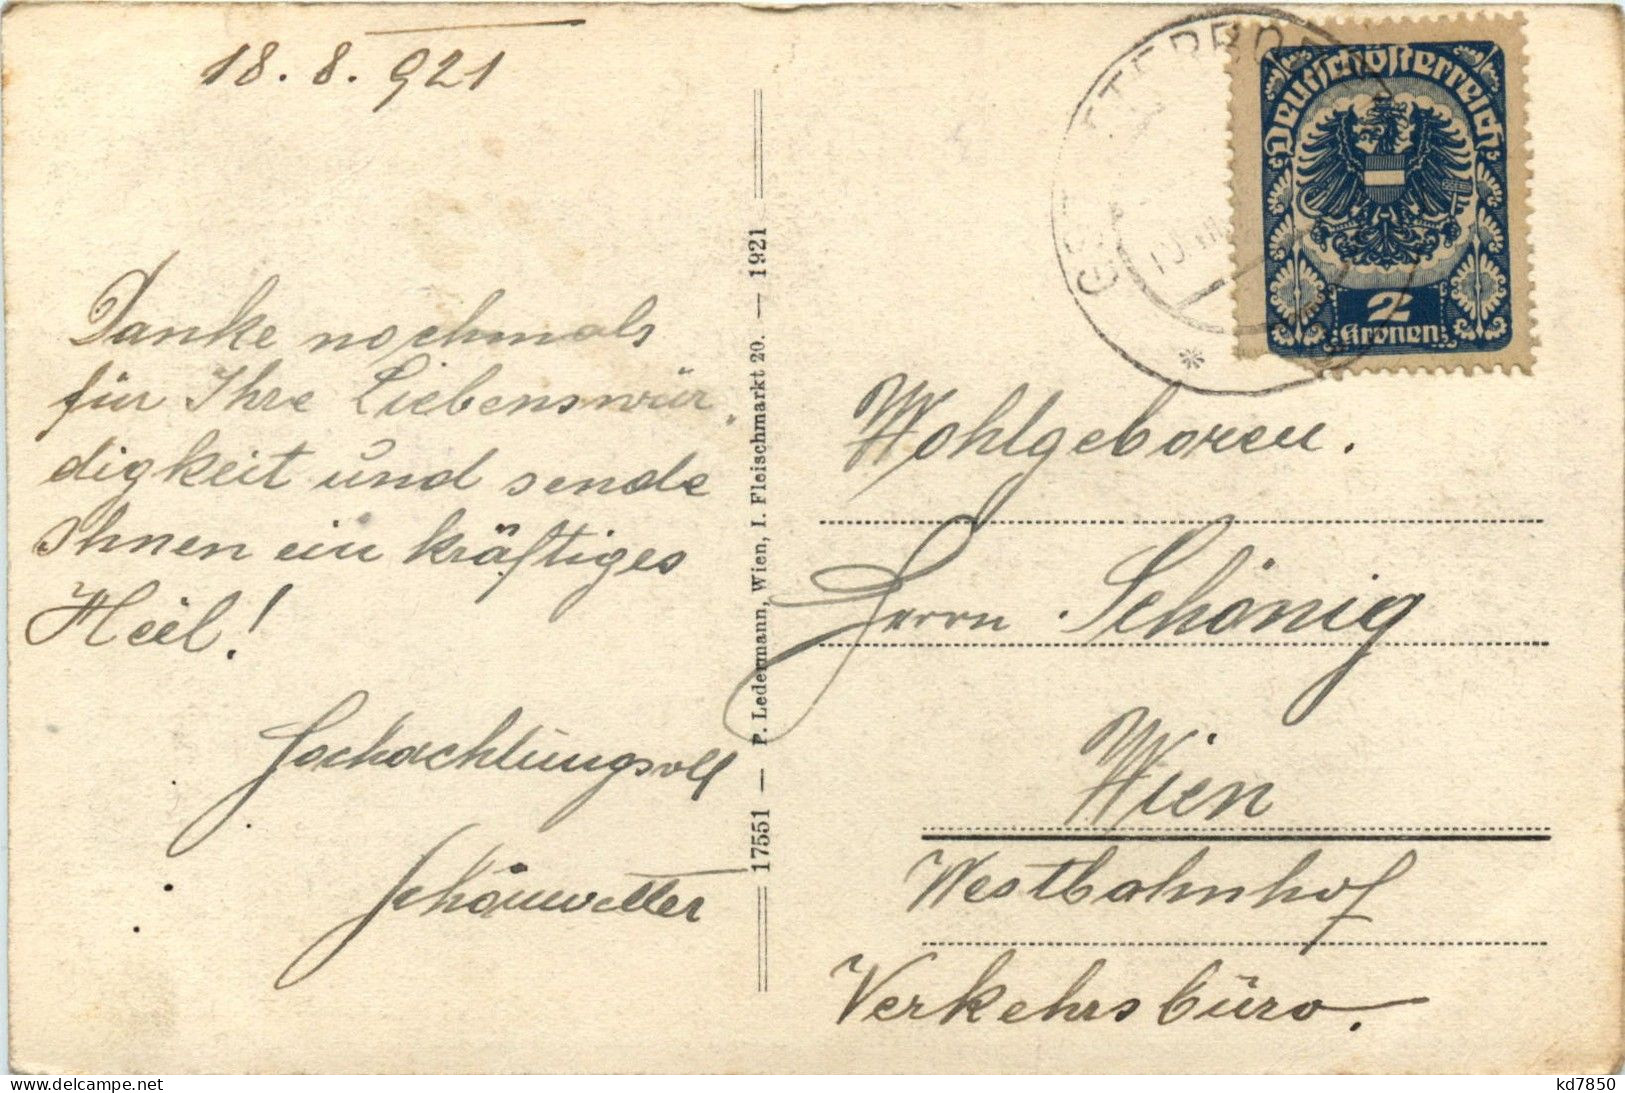 18.8.921
Danke nochmals
für Ihre Liebenswür„
digkeit und sende
Ihnen ein kräftiges
Heil!
Hochachtungsvoll
Schönwetter
17551 — P. Ledermann, Wien, I. Fleischmarkt 20. — 1921
Deutschösterreich
2
Kronen
Wohlgeboren.
Herrn Schönig
Wien
Westbahnhof
Verkehrsbüro.
kd7850